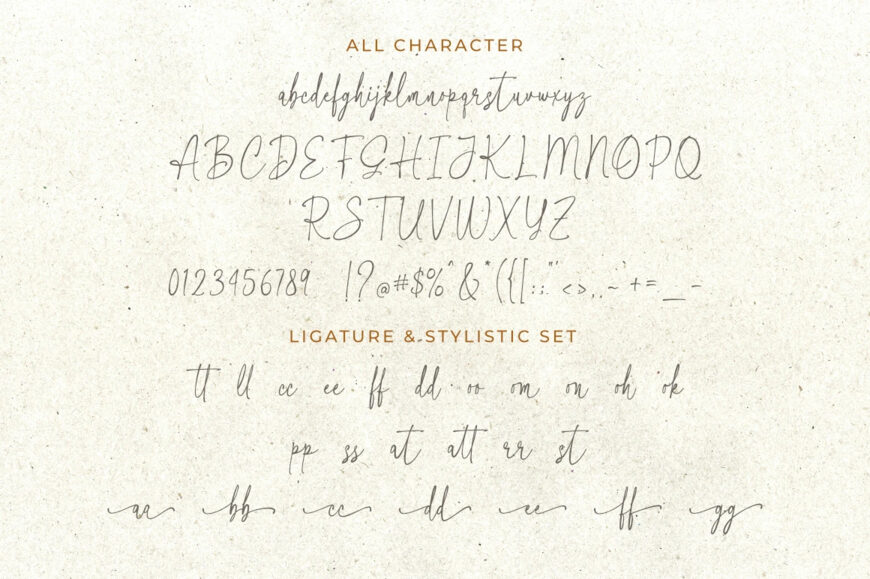 ALL CHARACTER
abcdefghijklmnopqrstuvwxyz
ABCDEFGHIJKLMNOPQ
RSTUVWXYZ
0123456789 !?@#$%^&*({[:;"'<>,.~`+=_-
LIGATURE & STYLISTIC SET
tt ll cc ee ff dd oo om on oh ok
pp ss at att rr st
aa bb cc dd ee ff gg